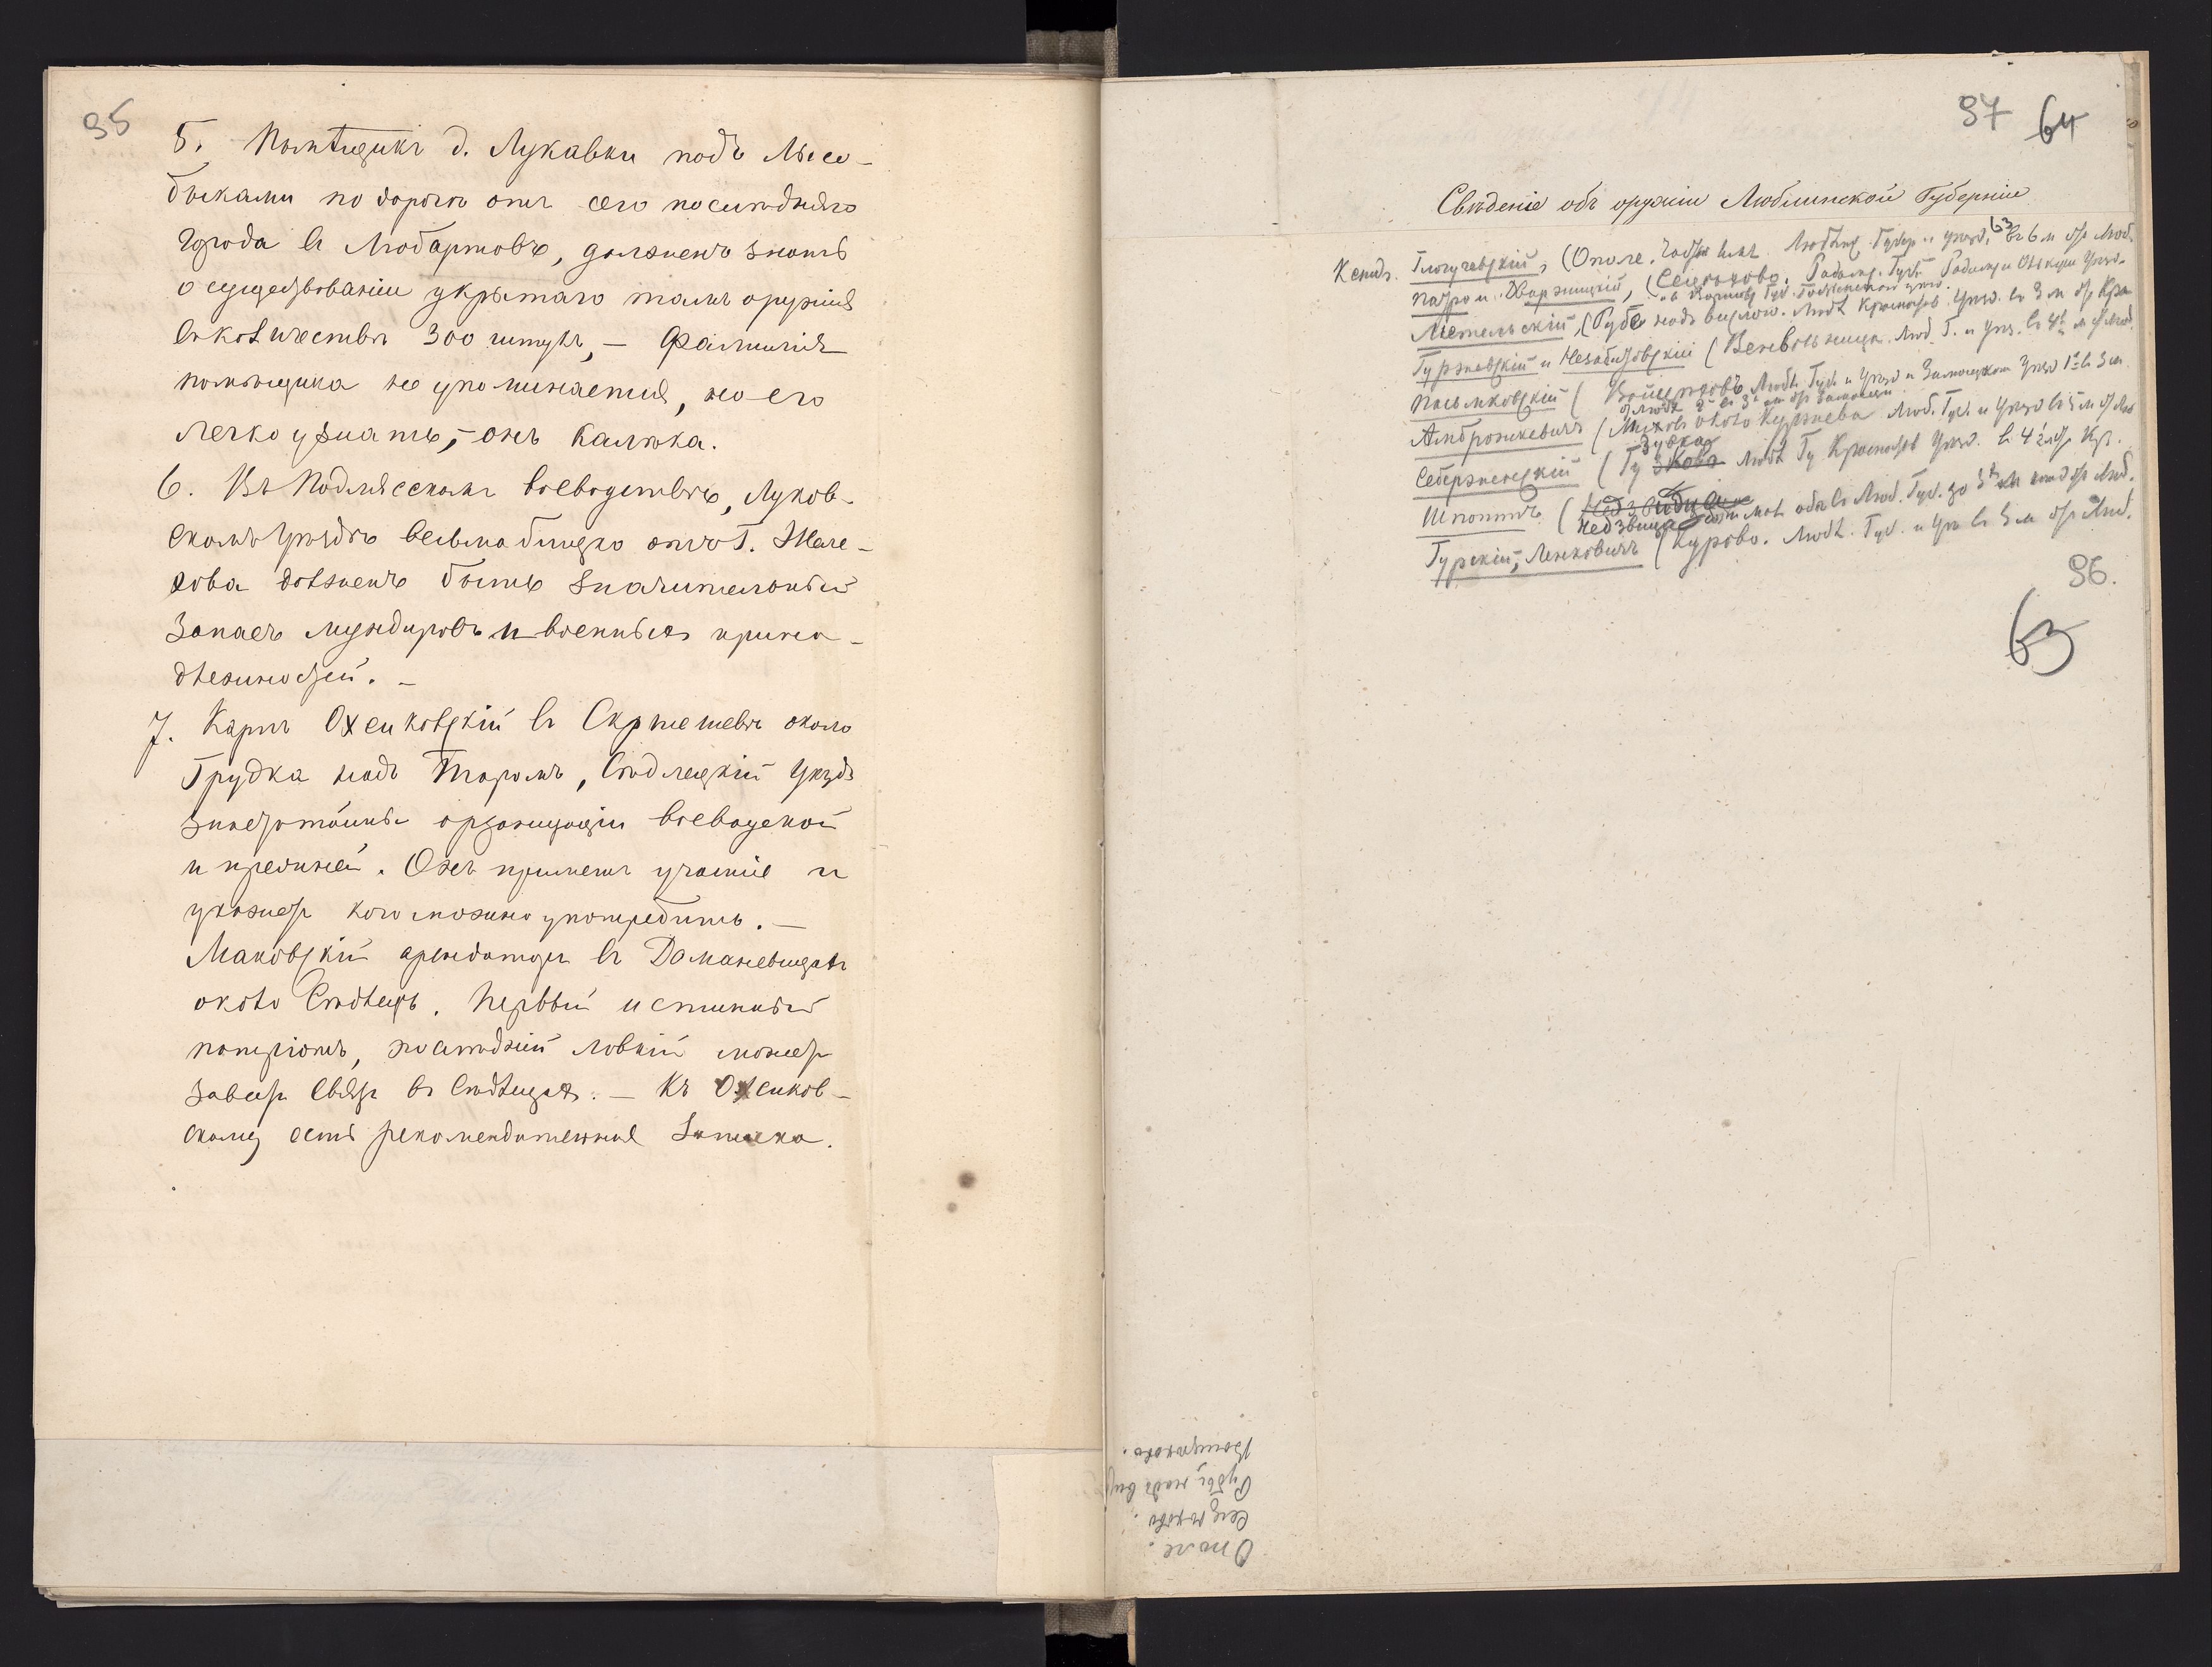 95
5. Помѣщикъ д. Лукавки подъ Лысо-
быками по дорогѣ отъ сего послѣдняго
города въ Любартовъ, долженъ знать
о существованіи укрытаго тамъ оружія
въ количествѣ 300 штукъ, — Фамилія
помѣщика не упоминается, но его
легко узнать, — онъ калѣка.
6. Въ Подлясскомъ воеводствѣ, Луков-
скомъ Уѣздѣ весьма близко отъ г. Желе-
хова долженъ быть значительный
запасъ мундировъ и военныхъ прина-
длежностей. —
7. Карлъ Охенковскій въ Скршешевѣ около
Грудка надъ Бугомъ, Сѣдлецкій Уѣздъ
знаетъ тайны организаціи воеводской
и прежней. Онъ приметъ участіе и
укажетъ кого можно употребить. —
Маковскій арендаторъ въ Доманевицахъ
около Сѣдлецъ. Первый истинный
патріотъ, послѣдній ловкій можетъ
завесть связь въ Сѣдлецахъ. — Къ Охенков-
скому есть рекомендательная записка.
97 64
Свѣденіе объ оружіи Люблинской Губерніи
63
Ксендз. Глогучевскій, (Ополе. Люблинс. Губер. и уѣзд. въ 6 м отъ Люб.
Падро и Дваржицкій, (Сецѣхово. Радомс. Губ. Радомс. и Опъкуш Уѣзд.
Метельскій, (Рубе надъ вислою. Любл Красностав. Уѣзд. въ 3 м отъ Кра
Гуржовскій и Незабитовскій (Венвольница. Люб. Г. и Уѣз. въ 4½ м отъ Люб.
Пасьмковскій ( Войцѣховъ Любл. Губ. и Уѣзд. и Замосцкомъ Уѣзд 1е въ 3 м.
отъ Любл 2е въ 3 м отъ Замосця
Амброжкевичъ (Мѣховъ около Куржнева Люб. Губ. и Уѣзд въ 5 м отъ Лю
Зуека
Себержинскій ( Гу Любл Гу Красностав Уѣзд. въ 4 м отъ Кр.
Шпоттъ ( Недзвица Люб. Губ. до 3 м отъ Люб.
Гурскій, Ленковичъ (Курово. Любл. Губ. и Уѣз въ 5 м отъ Люб.
96.
63
Ополе.
Сецѣхово.
Рубы, надъ вис
Войцѣхово.